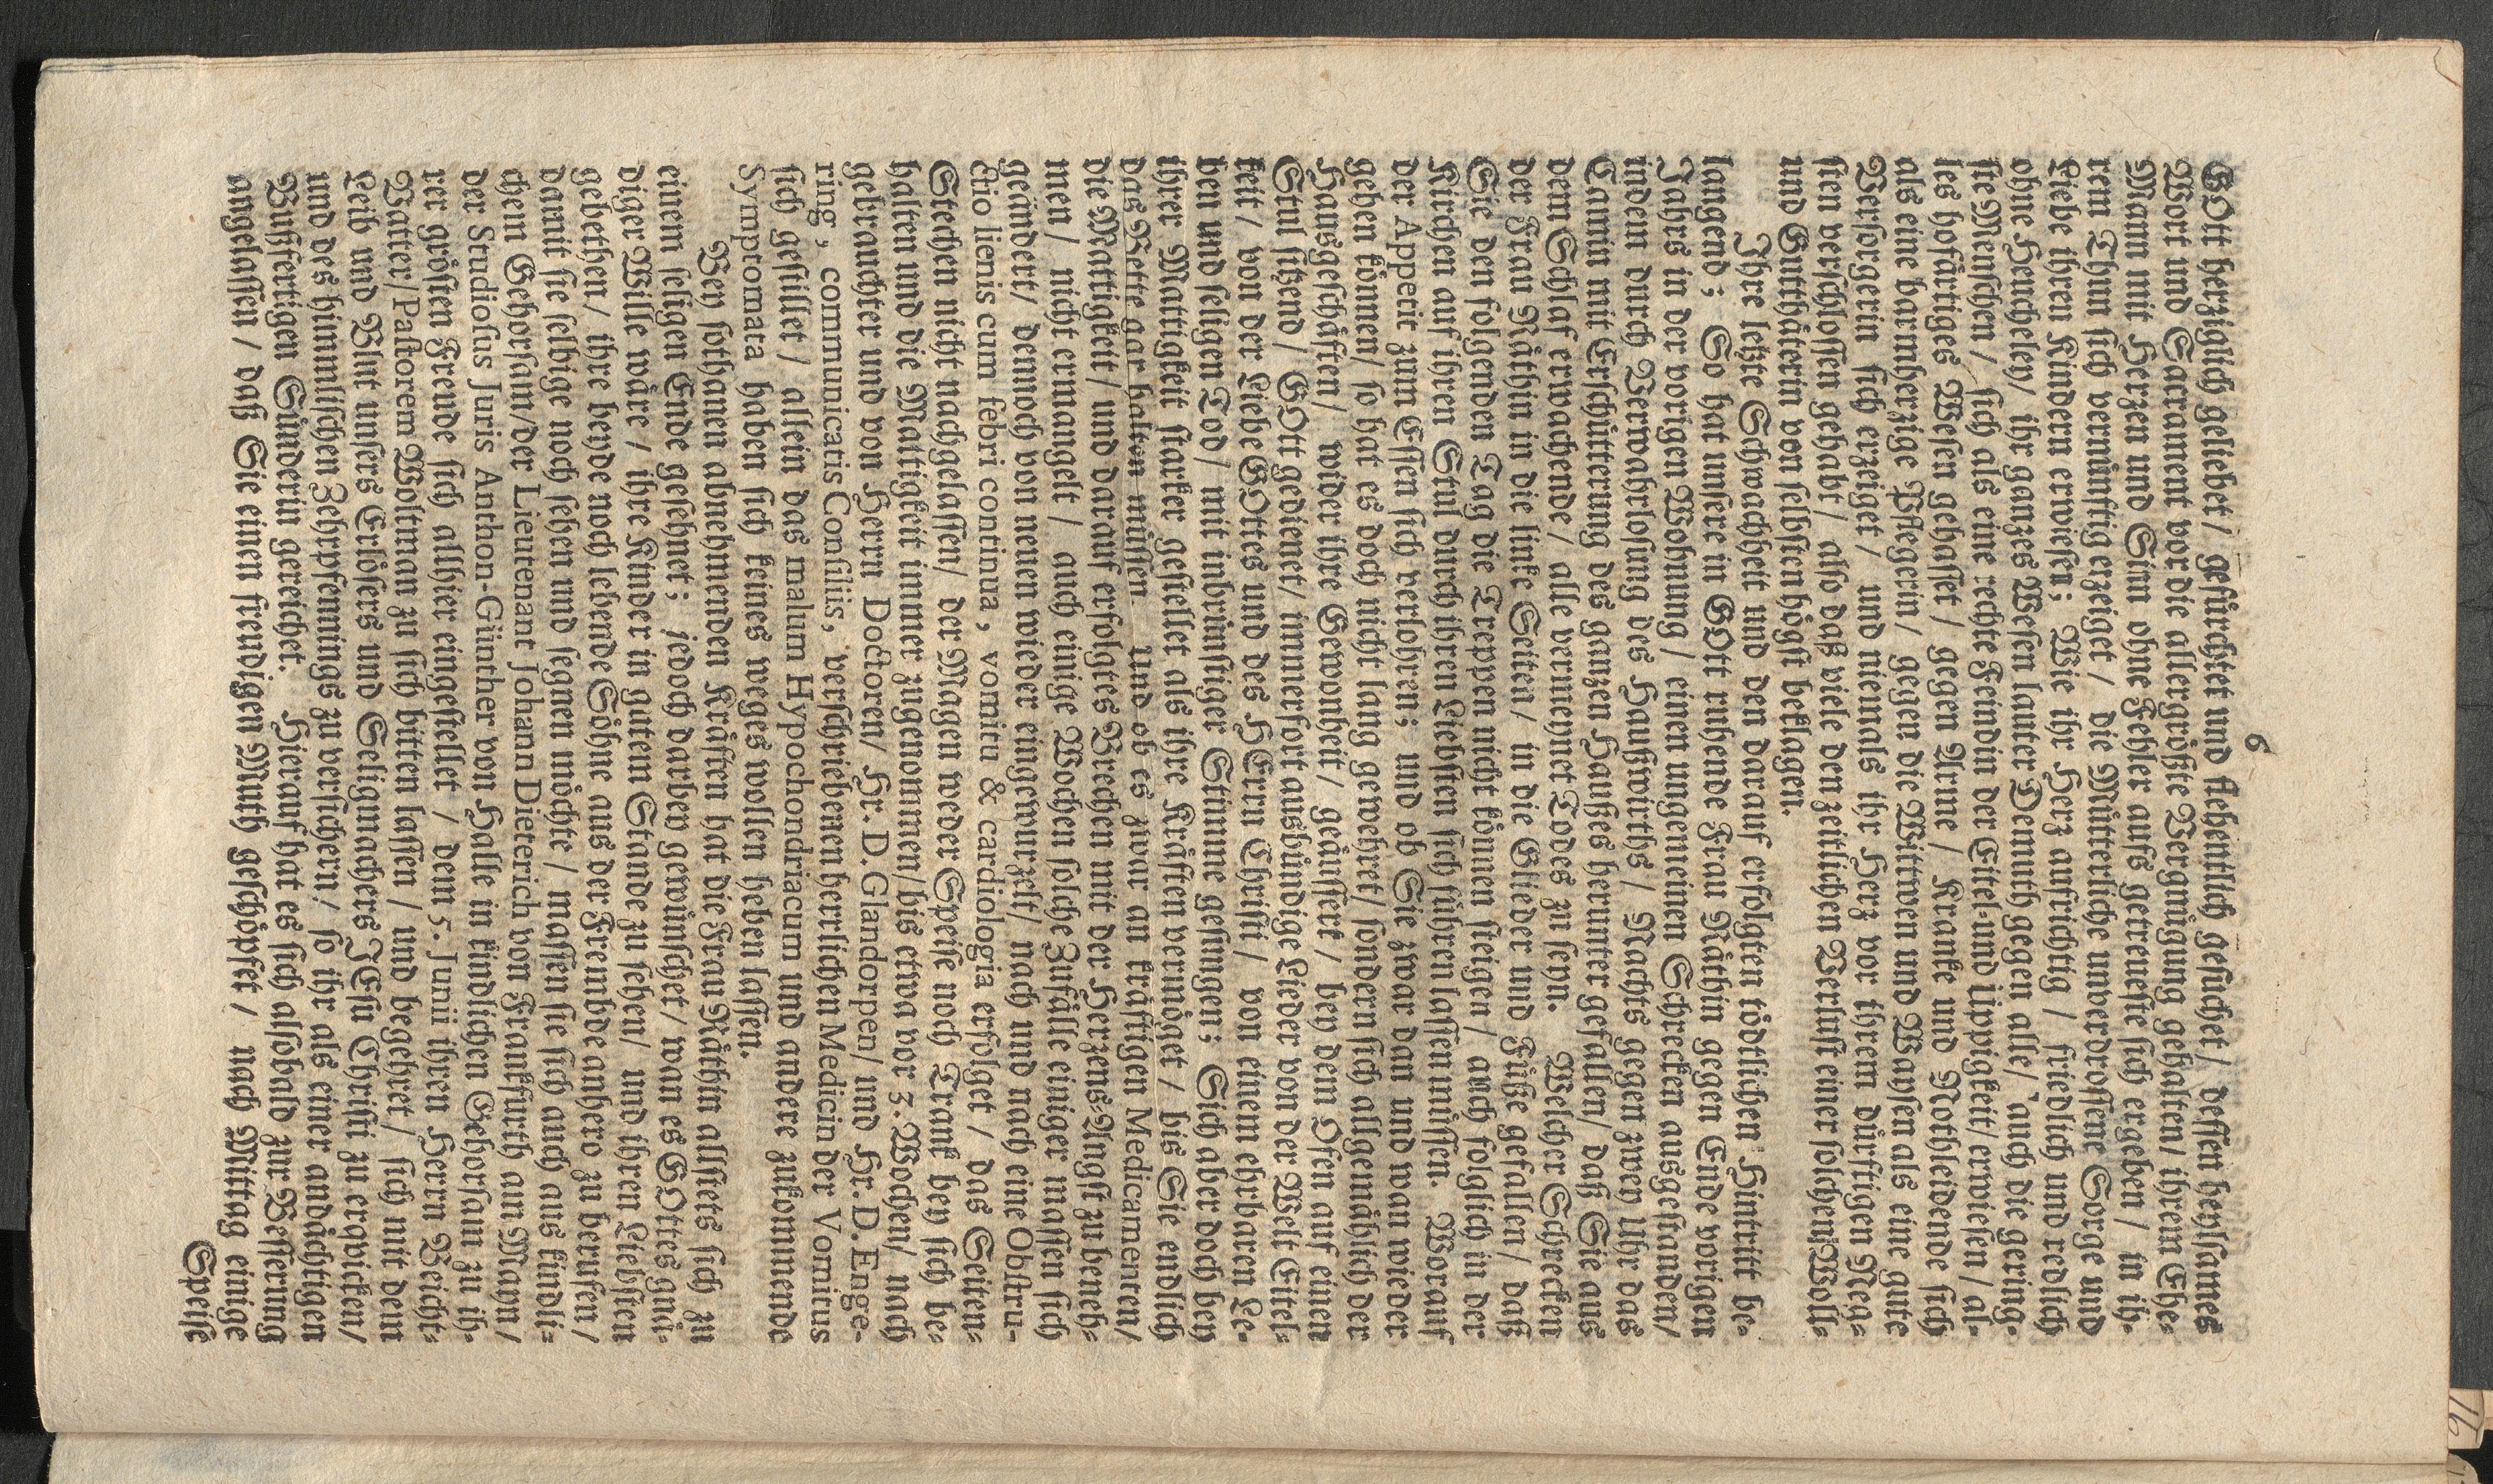 6
GOtt herziglich geliebet/ gefürchtet und flehentlich gesuchet/ dessen heylsames
Wort und Sacrament vor die allergröste Vergnügung gehalten/ ihrem Ehe-
Mann mit Herzen und Sinn ohne Fehler aufs getreueste sich ergeben/ in ih-
rem Thun sich vernünftig erzeiget/ die Mütterliche unverdrossene Sorge und
Liebe ihren Kindern erwiesen; Wie ihr Herz aufrichtig/ friedlich und redlich
ohne Heucheley/ ihr ganzes Wesen lauter Demuth gegen alle/ auch die gering-
ste Menschen/ sich als eine rechte Feindin der Eitel-und Uppigkeit/ erwiesen/ al-
les hofärtiges Wesen gehasset/ gegen Arme/ Kranke und Nothleidende sich
als eine barmherzige Pflegerin/ gegen die Wittwen und Waysen als eine gute
Versorgerin sich erzeiget/ und niemals ihr Herz vor ihrem dürftigen Neg-
sten verschlossen gehabt/ also daß viele den zeitlichen Verlust einer solchen Woll-
und Gutthäterin von selbsten högst beklagen.
Ihre letzte Schwachheit und den darauf erfolgten tödtlichen Hintritt be-
langend; So hat unsere in GOtt ruhende Frau Räthin gegen Ende vorigen
Jahrs in der vorigen Wohnung/ einen ungemeinen Schrecken ausgestanden/
indem durch Verwahrlosung des Haußwirths/ Nachts gegen zwey Uhr das
Cammin mit Erschütterung des ganzen Hauses herunter gefallen/ daß Sie aus
dem Schlaf erwachende/ alle vermeynet Todes zu seyn. Welcher Schrecken
der Frau Räthin in die linke Seiten/ in die Glieder und Füße gefallen/ daß
Sie den folgenden Tag die Treppen nicht können steigen/ auch folglich in der
Kirchen auf ihren Stul durch ihren Liebsten sich führen lassen müssen. Worauf
der Appetit zum Essen sich verlohren; und ob Sie zwar dan und wan wieder
gehen können/ so hat es doch nicht lang gewehret/ sondern sich allgemählich der
Hausgeschäften/ wider ihre Gewonheit/ geäussert/ bey dem Ofen auf einen
Stul sitzend/ GOtt gedienet/ immerfort ausbündige Lieder von der Welt Eitel-
keit/ von der Liebe GOttes und des HErrn Christi/ von einem ehrbaren Le-
ben und seligen Tod/ mit inbrünstiger Stimme gesungen; Sich aber doch bey
ihrer Mattigkeit starker gestellet als ihre Kräften vermöget/ bis Sie endlich
das Bette gar halten müssen. Und ob es zwar an kräftigen Medicamenten/
die Mattigkeit/ und darauf erfolgtes Brechen mit der Herzens-Angst zu beneh-
men/ nicht ermangelt/ auch einige Wochen solche Zufälle einiger massen sich
geändert/ dennoch von neuen wieder eingewurzelt/ nach und nach eine Obstru-
ctio lienis cum febri continua, vomitu & cardiologia erfolget/ das Seiten-
Stechen nicht nachgelassen/ der Magen weder Speise noch Trank bey sich be-
halten und die Mattigkeit immer zugenommen/ bis etwa vor 3. Wochen/ nach
gebrauchter und von Herrn Doctoren/ Hr. D. Glandorpen/ und Hr. D. Enge-
ring, communicatis Consiliis, verschriebenen herrlichen Medicin der Vomitus
sich gestillet/ allein das malum Hypochondriacum und andere zukommende
Symptomata haben sich keines weges wollen heben lassen.
Bey sothanen abnehmenden Kräften hat die Frau Räthin allstets sich zu
einem seligen Ende gesehnet; jedoch darbey gewünschet/ wan es GOttes gnä-
diger Wille wäre/ ihre Kinder in gutem Stande zu sehen/ und ihren Liebsten
gebethen/ ihre beyde noch lebende Söhne aus der Frembde anhero zu berufen/
damit sie selbige noch sehen und segnen möchte/ massen sie sich auch aus kindli-
chem Gehorsam/ der Lieutenant Johann Dieterich von Frankfurth am Mayn/
der Studiosus Juris Anthon-Günther von Halle in kindlichen Gehorsam zu ih-
rer grösten Freude sich allhier eingestellet/ dem 5. Junii ihren Herrn Beicht-
Vatter/ Pastorem Woltman zu sich bitten lassen/ und begehret/ sich mit dem
Leib und Blut unsers Erlösers und Seligmachers JEsu Christi zu erqvicken/
und des himmlischen Zehrpfennings zu versichern/ so ihr als einer andächtigen
Bußfertigen Sünderin gereichet. Hierauf hat es sich alsobald zur Besserung
angelassen/ daß Sie einen freudigen Muth geschöpfet/ nach Mittag einige
Speise